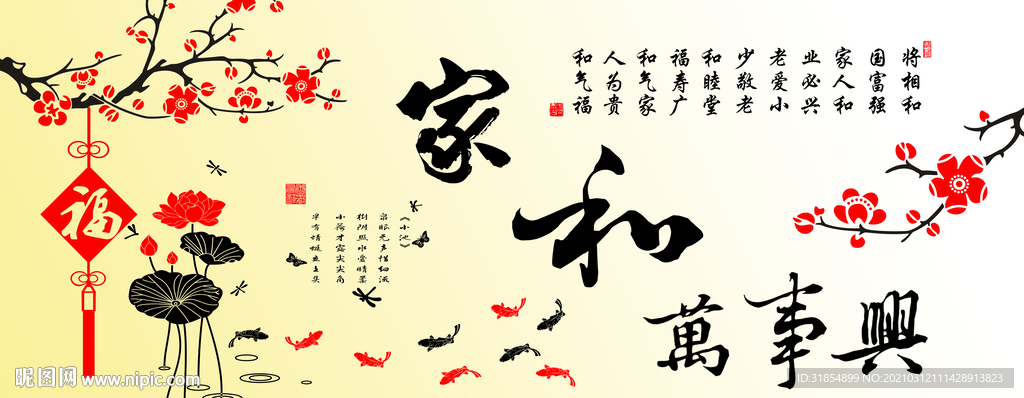 将相和
国富强
家人和
业必兴
老爱小
少敬老
和睦堂
福寿广
和气家
人为贵
和气福
家和萬事興
福
《小池》
泉眼无声惜细流
树阴照水爱晴柔
小荷才露尖尖角
早有蜻蜓立上头
昵图网 www.nipic.com
ID:31854899 NO:20210312111428913823